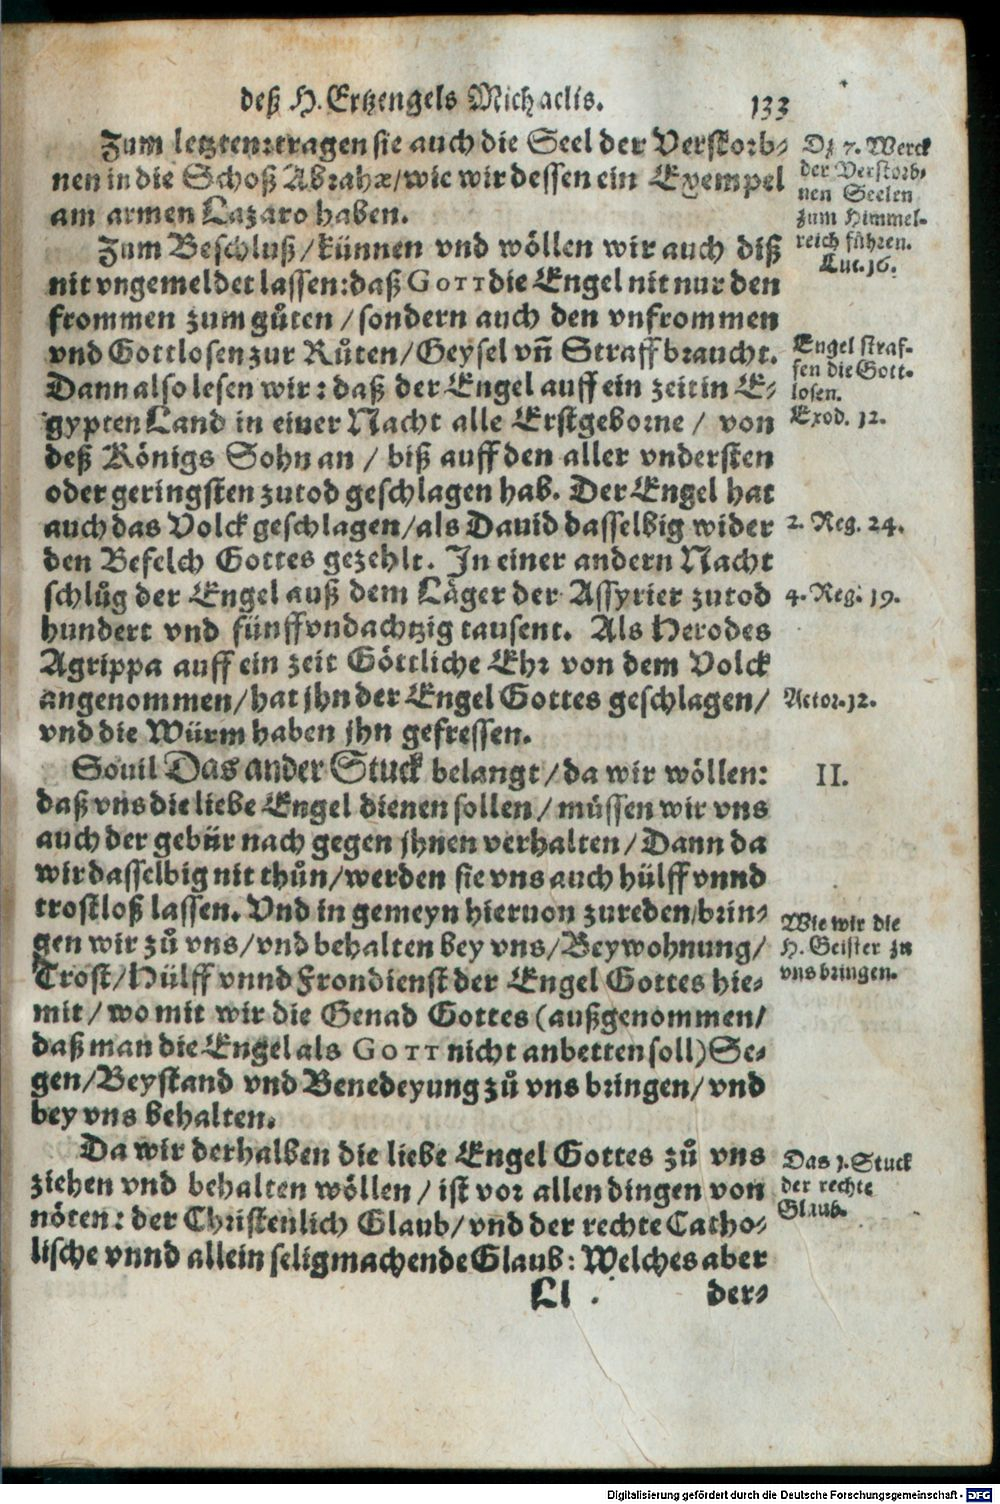 deß H. Ertzengels Michaelis. 133
Zum letzten: tragen sie auch die Seel der Verstorb-
nen in die Schoß Abrahæ/ wie wir dessen ein Exempel
am armen Lazaro haben.
Dz 7. Werck
der Verstorb-
nen Seelen
zum Himmel-
reich führen.
Luc. 16.
Zum Beschluß/ künnen vnd wöllen wir auch diß
nit vngemeldet lassen: daß GOTT die Engel nit nur den
frommen zum gůten/ sondern auch den vnfrommen
vnd Gottlosen zur Růten/ Geysel vñ Straff braucht.
Dann also lesen wir: daß der Engel auff ein zeit in E-
gypten Land in einer Nacht alle Erstgeborne/ von
deß Königs Sohn an/ biß auff den aller vndersten
oder geringsten zutod geschlagen hab. Der Engel hat
auch das Volck geschlagen/ als Dauid dasselbig wider
den Befelch Gottes gezehlt. In einer andern Nacht
schlůg der Engel auß dem Läger der Assyrier zutod
hundert vnd fünffvndachtzig tausent. Als Herodes
Agrippa auff ein zeit Göttliche Ehr von dem Volck
angenommen/ hat jhn der Engel Gottes geschlagen/
vnd die Würm haben jhn gefressen.
Engel straf-
fen die Gott-
losen.
Exod. 12.
2. Reg. 24.
4. Reg. 19.
Actor. 12.
Souil Das ander Stuck belangt/ da wir wöllen:
daß vns die liebe Engel dienen sollen/ müssen wir vns
auch der gebür nach gegen jhnen verhalten/ Dann da
wir dasselbig nit thůn/ werden sie vns auch hülff vnnd
trostloß lassen. Vnd in gemeyn hieruon zureden/ brin-
gen wir zů vns/ vnd behalten bey vns/ Beywohnung/
Trost/ Hülff vnnd Frondienst der Engel Gottes hie-
mit/ wo mit wir die Genad Gottes (außgenommen/
daß man die Engel als GOTT nicht anbetten soll) Se-
gen/ Beystand vnd Benedeyung zů vns bringen/ vnd
bey vns behalten.
II.
Wie wir die
H. Geister zu
vns bringen.
Da wir derhalben die liebe Engel Gottes zů vns
ziehen vnd behalten wöllen/ ist vor allen dingen von
nöten: der Christenlich Glaub/ vnd der rechte Catho-
lische vnnd allein seligmachende Glaub: Welches aber
Das 1. Stuck
der rechte
Glaub.
Ll der-
Digitalisierung gefördert durch die Deutsche Forschungsgemeinschaft - DFG